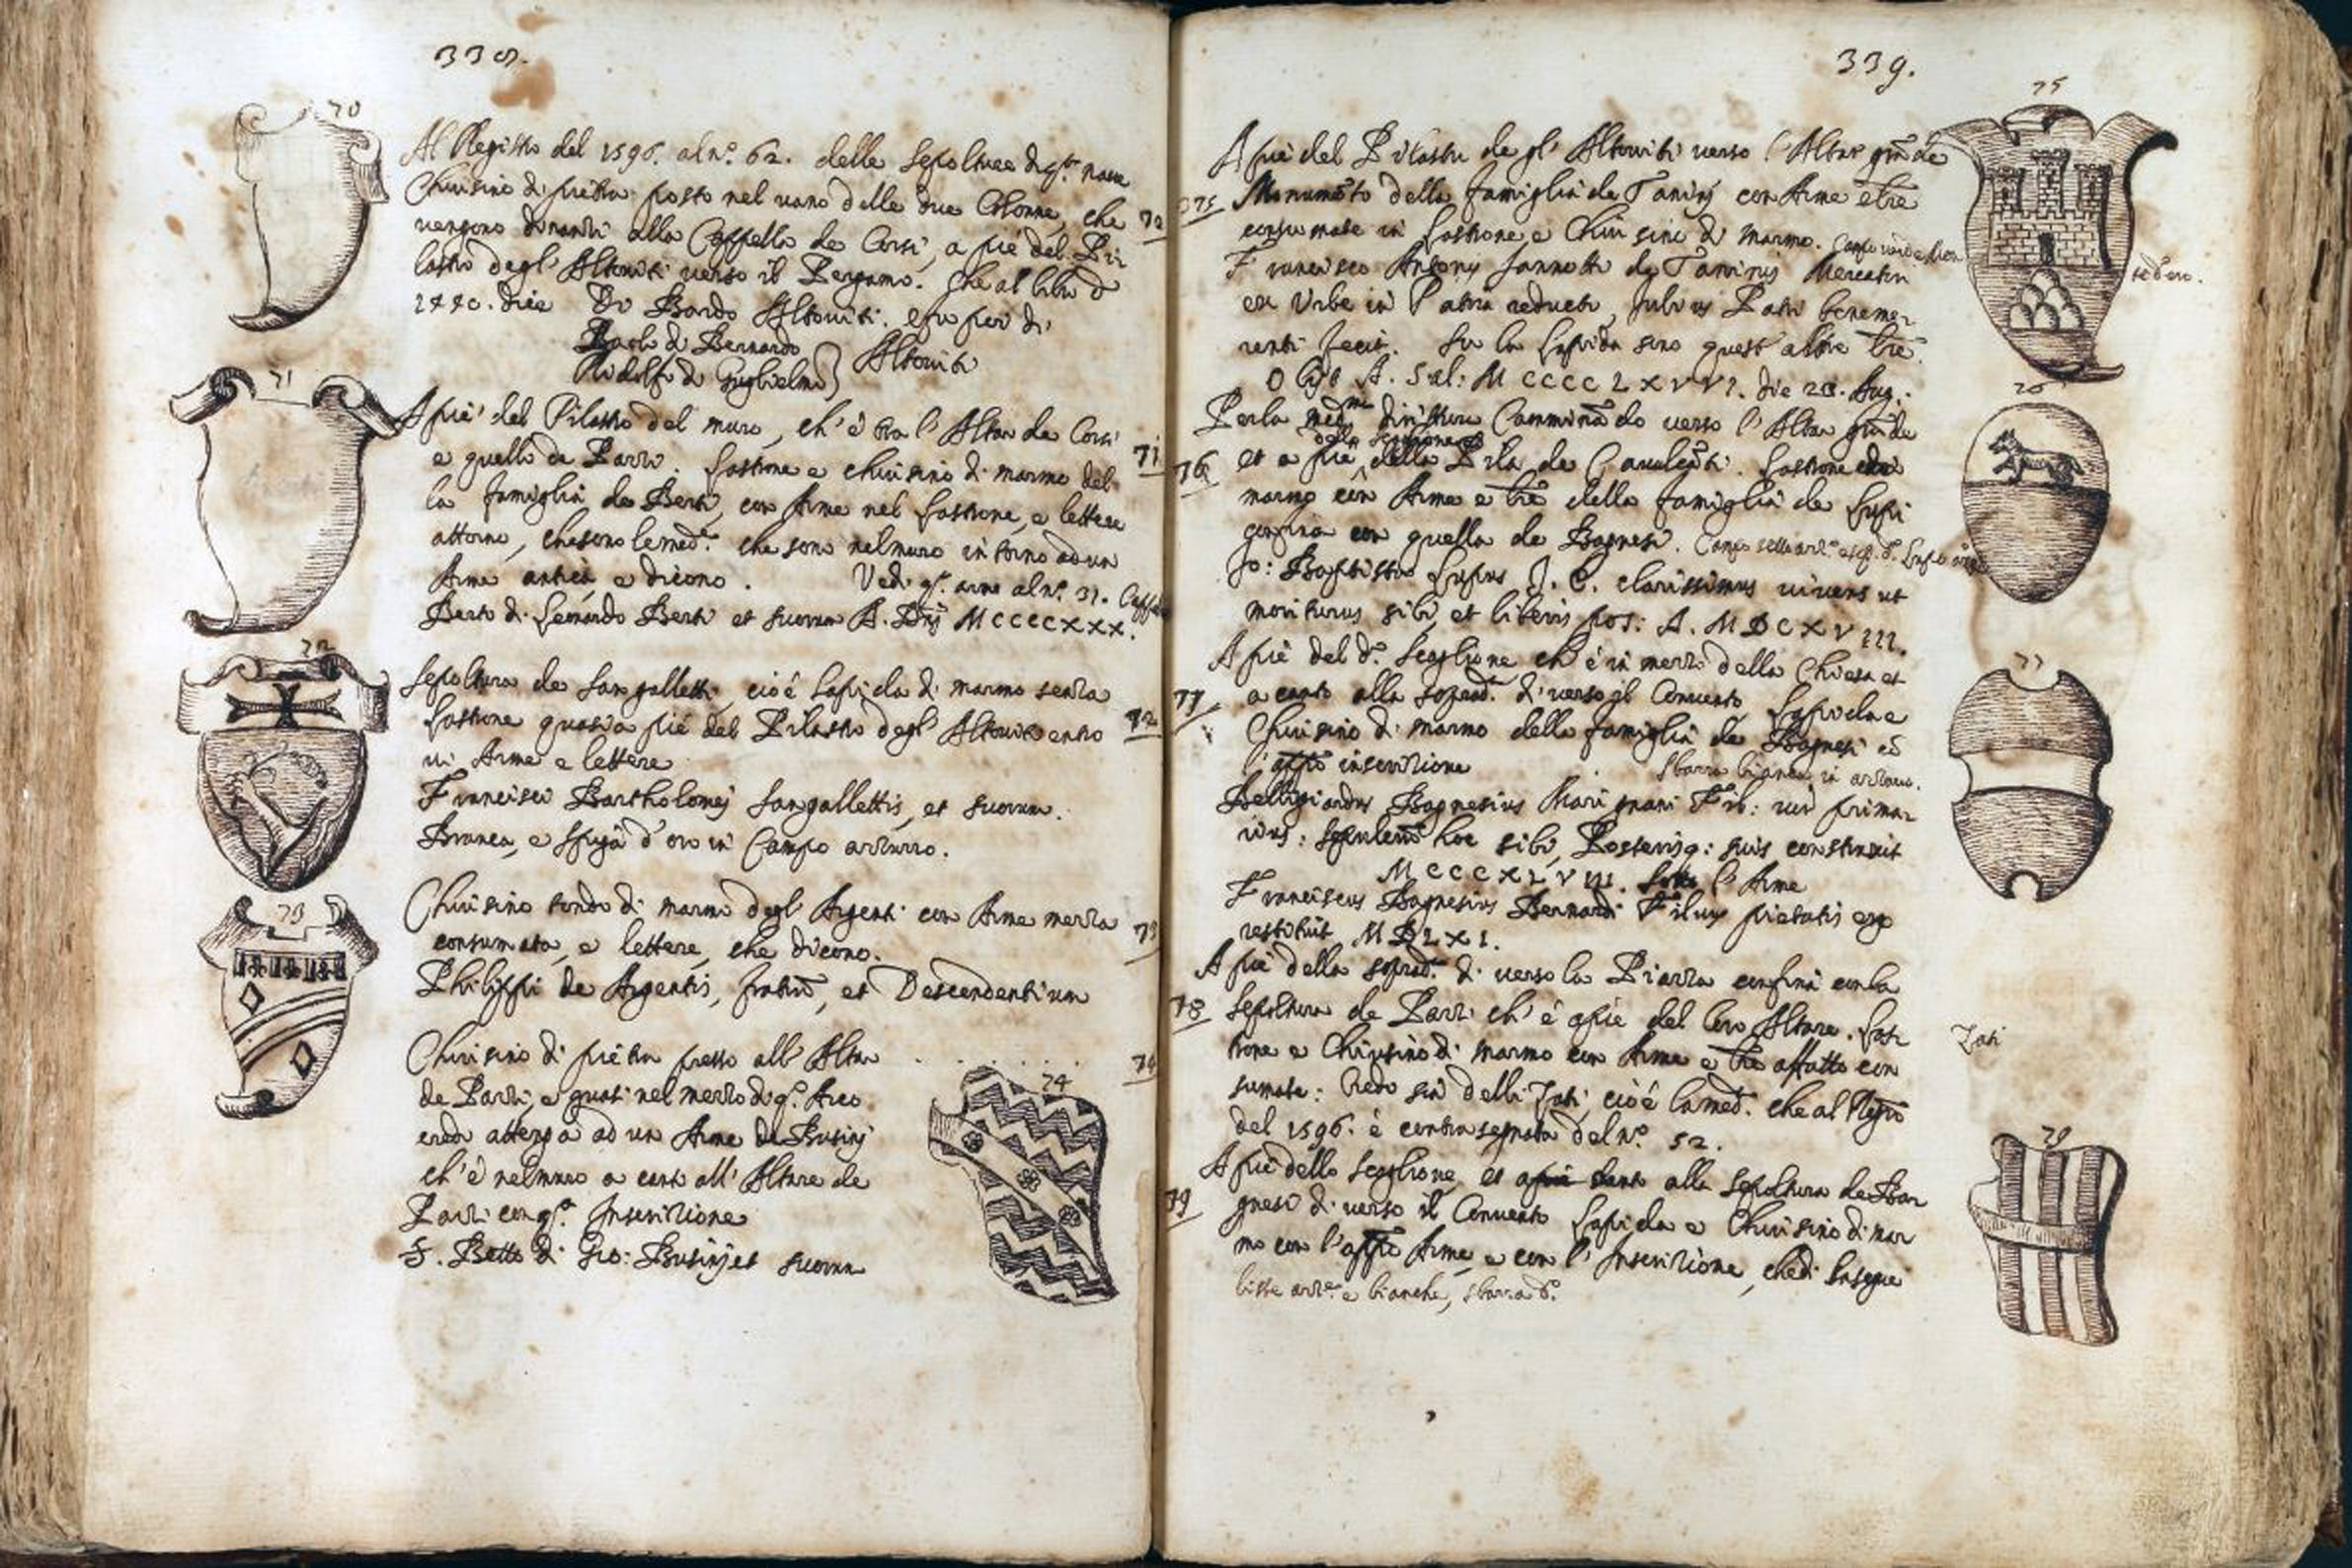 338.
70
Al Registro del 1596. al n.º 62. delle Sepolture di q.ª nave
Chiusino di pietra posto nel vano delle due Colonne, che
vengono dinanzi alla Cappella de Corsi, a piè del Pi-
lastro degl' Altoviti verso il Pergamo. Che al libro d
1440. dice Di Bardo Altoviti. e fu poi di
Paolo di Bernardo
Ridolfo di Guglielmo } Altoviti
70
71
A piè del Pilastro del muro, ch'è tra l'Altar de Corsi
e quello de Pazzi. Lastrone e chiusino di marmo del-
la famiglia de Berti, con Arme nel Lastrone, e lettere
attorno, che sono le med.e che sono nel muro intorno ad un
Arme antica, e dicono. Vedi q.ª arme al n.º 31.
Berto di Leonardo Berti et suorum A. Dñj MCCCCXXX.
71
72
Sepoltura de Sangalletti, cioè Lapida di marmo senza
Lastrone quasi a piè del Pilastro degl' Altoviti entro-
vi Arme e lettere
Francisci Bartholomej Sangallettis, et suorum.
Branca, e Spiga d'oro in Campo azzurro.
72
73
Chiusino tondo di marmo degl' Argenti con Arme mezza
consumata, e lettere, che dicono.
Philippi de Argentis, fratrũ, et Descendentium
73
Chiusino di pietra presso all' Altar
de Pazzi, e quasi nel mezzo di q.º Arco
credo attenga ad un Arme de Businj
ch'è nel muro a canto all' Altare de
Pazzi con q.ª Inscrizione
S. Betto di Gio: Businj et suorum
74
74
339.
75
A piè del Pilastro de gl' Altoviti verso l'Altar grãde
375 Monumẽto della famiglia de Taninj con Arme e lr̃e
consumate in Lastrone, e Chiusino di marmo.
Francisco Antonij Jannotti de Taninis Mercatori
ex Urbe in Patria reducto, Julius Patri beneme-
renti fecit. Su la Lapida sono quest' altre lr̃e.
Obijt A. Sal: MCCCCLXVVI. die 28. Aug.
76
Per la med.ma dirittura Camminãdo verso l'Altar grãde
76 et a piè della Pila de Cavalcãti. Lastrone
marmo cõn Arme e lr̃e della famiglia de Lupi
confina con quella de Bagnesi.
Jo: Baptista Lupus J. C. clarissimus vivens ut
moriturus sibi, et liberis pos: A. MDCXVIII.
77
A piè del d.º Scaglione ch'è in mezzo della Chiesa et
77 a canto alla soprad.ª di verso il Convento Lapida e
Chiusino di marmo della famiglia de Bagnesi cõ
l'app.o inscrizione Sbarra bianca in azzurro.
Belligiardus Bagnesius Mari gnani Fil: vir prima-
rius: sepulcrũ hoc sibi, Posterisq: suis construxit
MCCCXLVIII. Sotto l'Arme
Franciscus Bagnesius Bernardi Filius pietatis ergo
restituit MDLXI.
A piè della soprad.ª di verso la Piazza confina con la
78 Sepoltura de Pazzi ch'è a piè del loro Altare. Las-
trone e Chiusino di marmo con Arme e lr̃e affatto con-
sumate: credo sia delli Zati, cioè la med.ª che al Regrõ
del 1596. è contrasegnata del n.º 52.
Zati
79
A piè dello Scaglione, et a canto alla Sepoltura de Ba-
79 gnesi di verso il Convento Lapida e Chiusino di mar-
mo con l'app.o Arme, e con l'Inscrizione, che di la segue
liste azz.e e bianche, sbarra d.º